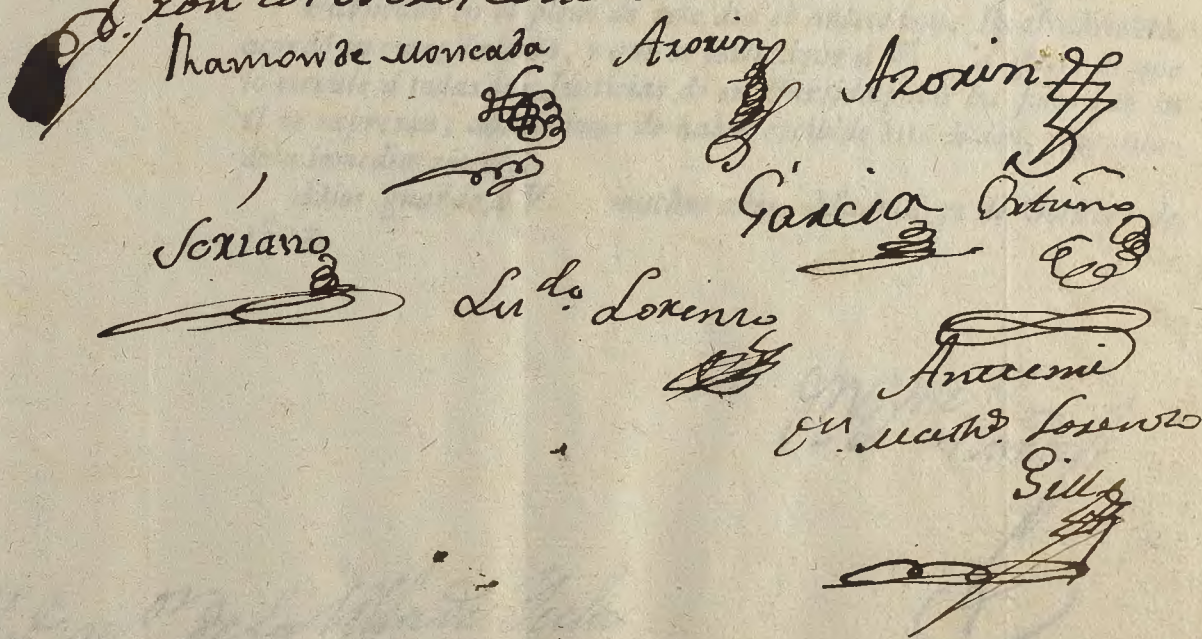 Ramon de Moncada Azorin Azorin
Soriano Garcia Ortuño
Lizdo. Lorenzo
Antemi
Matheo. Lorenzo
Gill